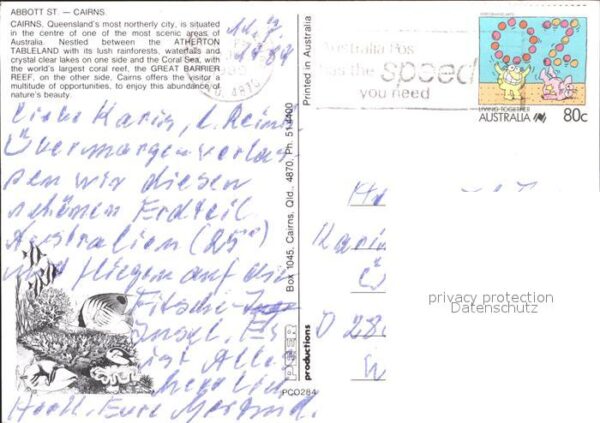 ABBOTT ST. — CAIRNS
CAIRNS, Queensland's most northerly city, is situated
in the centre of one of the most scenic areas of
Australia. Nestled between the ATHERTON
TABLELAND with its lush rainforests, waterfalls and
crystal clear lakes on one side and the Coral Sea, with
the world's largest coral reef, the GREAT BARRIER
REEF, on the other side, Cairns offers the visitor a
multitude of opportunities, to enjoy this abundance of
nature's beauty.
Liebe Karin, l.
Übermorgen verlas-
sen wir diesen
schönen Erdteil
Australien (25°)
und fliegen auf die
Fitschi-
Insel. Es
Alles
Eure
Printed in Australia
Box 1045, Cairns, Qld., 4870, Ph. 51 4400
PEER
productions
PCO284
Australia Pos
has the speed
you need
LIVING TOGETHER
AUSTRALIA 80c
Karin
D 28
W
privacy protection
Datenschutz